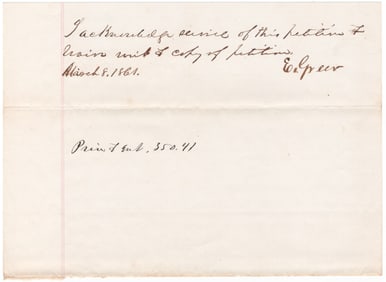 I acknowledge service of this petition &
waive writ & copy of petition
March 8. 1861.
E. Greer
Prin & int. 350.41